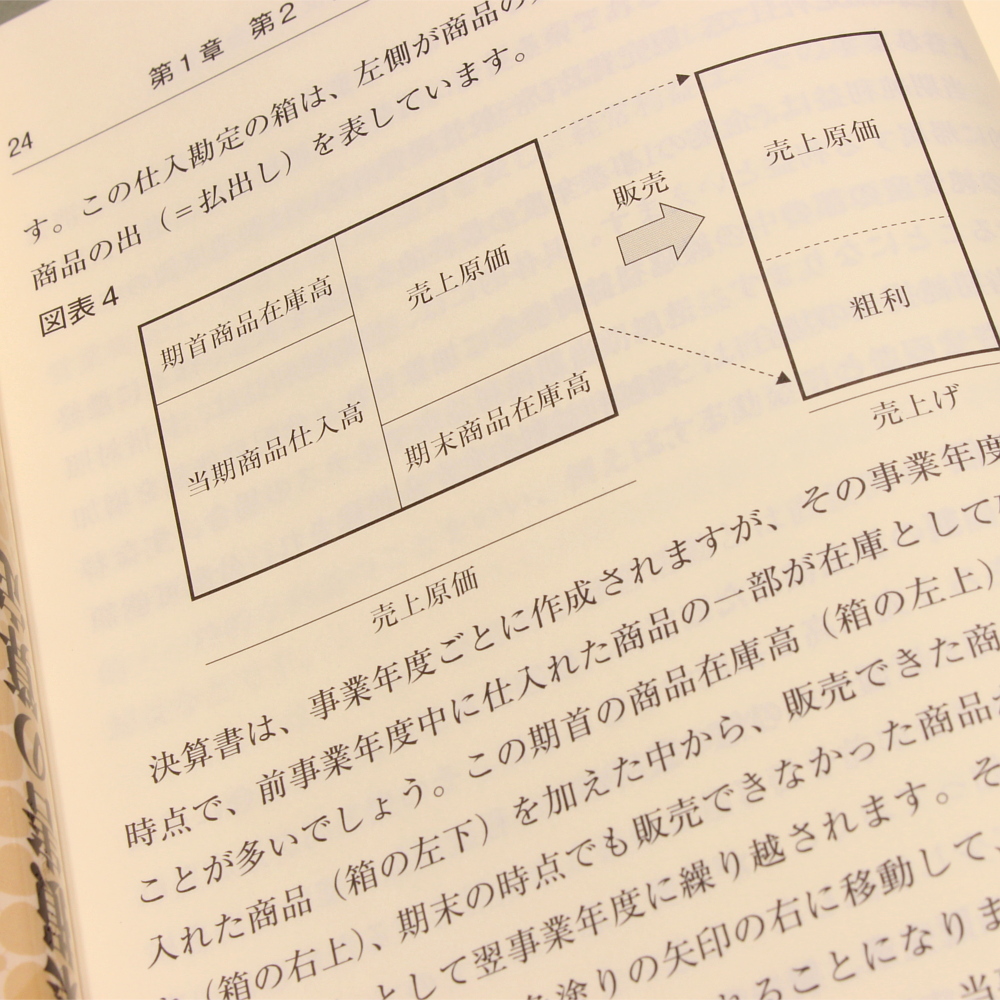 第1章 第2
24
す。この仕入勘定の箱は、左側が商品の
商品の出（＝払出し）を表しています。
図表4
期首商品在庫高
売上原価
当期商品仕入高
期末商品在庫高
売上原価
販売
売上原価
粗利
売上げ
決算書は、事業年度ごとに作成されますが、その事業年度
時点で、前事業年度中に仕入れた商品の一部が在庫として
ことが多いでしょう。この期首の商品在庫高（箱の左上）
入れた商品（箱の左下）を加えた中から、販売できた商
（箱の右上）、期末の時点でも販売できなかった商品
として翌事業年度に繰り越されます。そ
塗りの矢印の右に移動して、
ることになりま
当